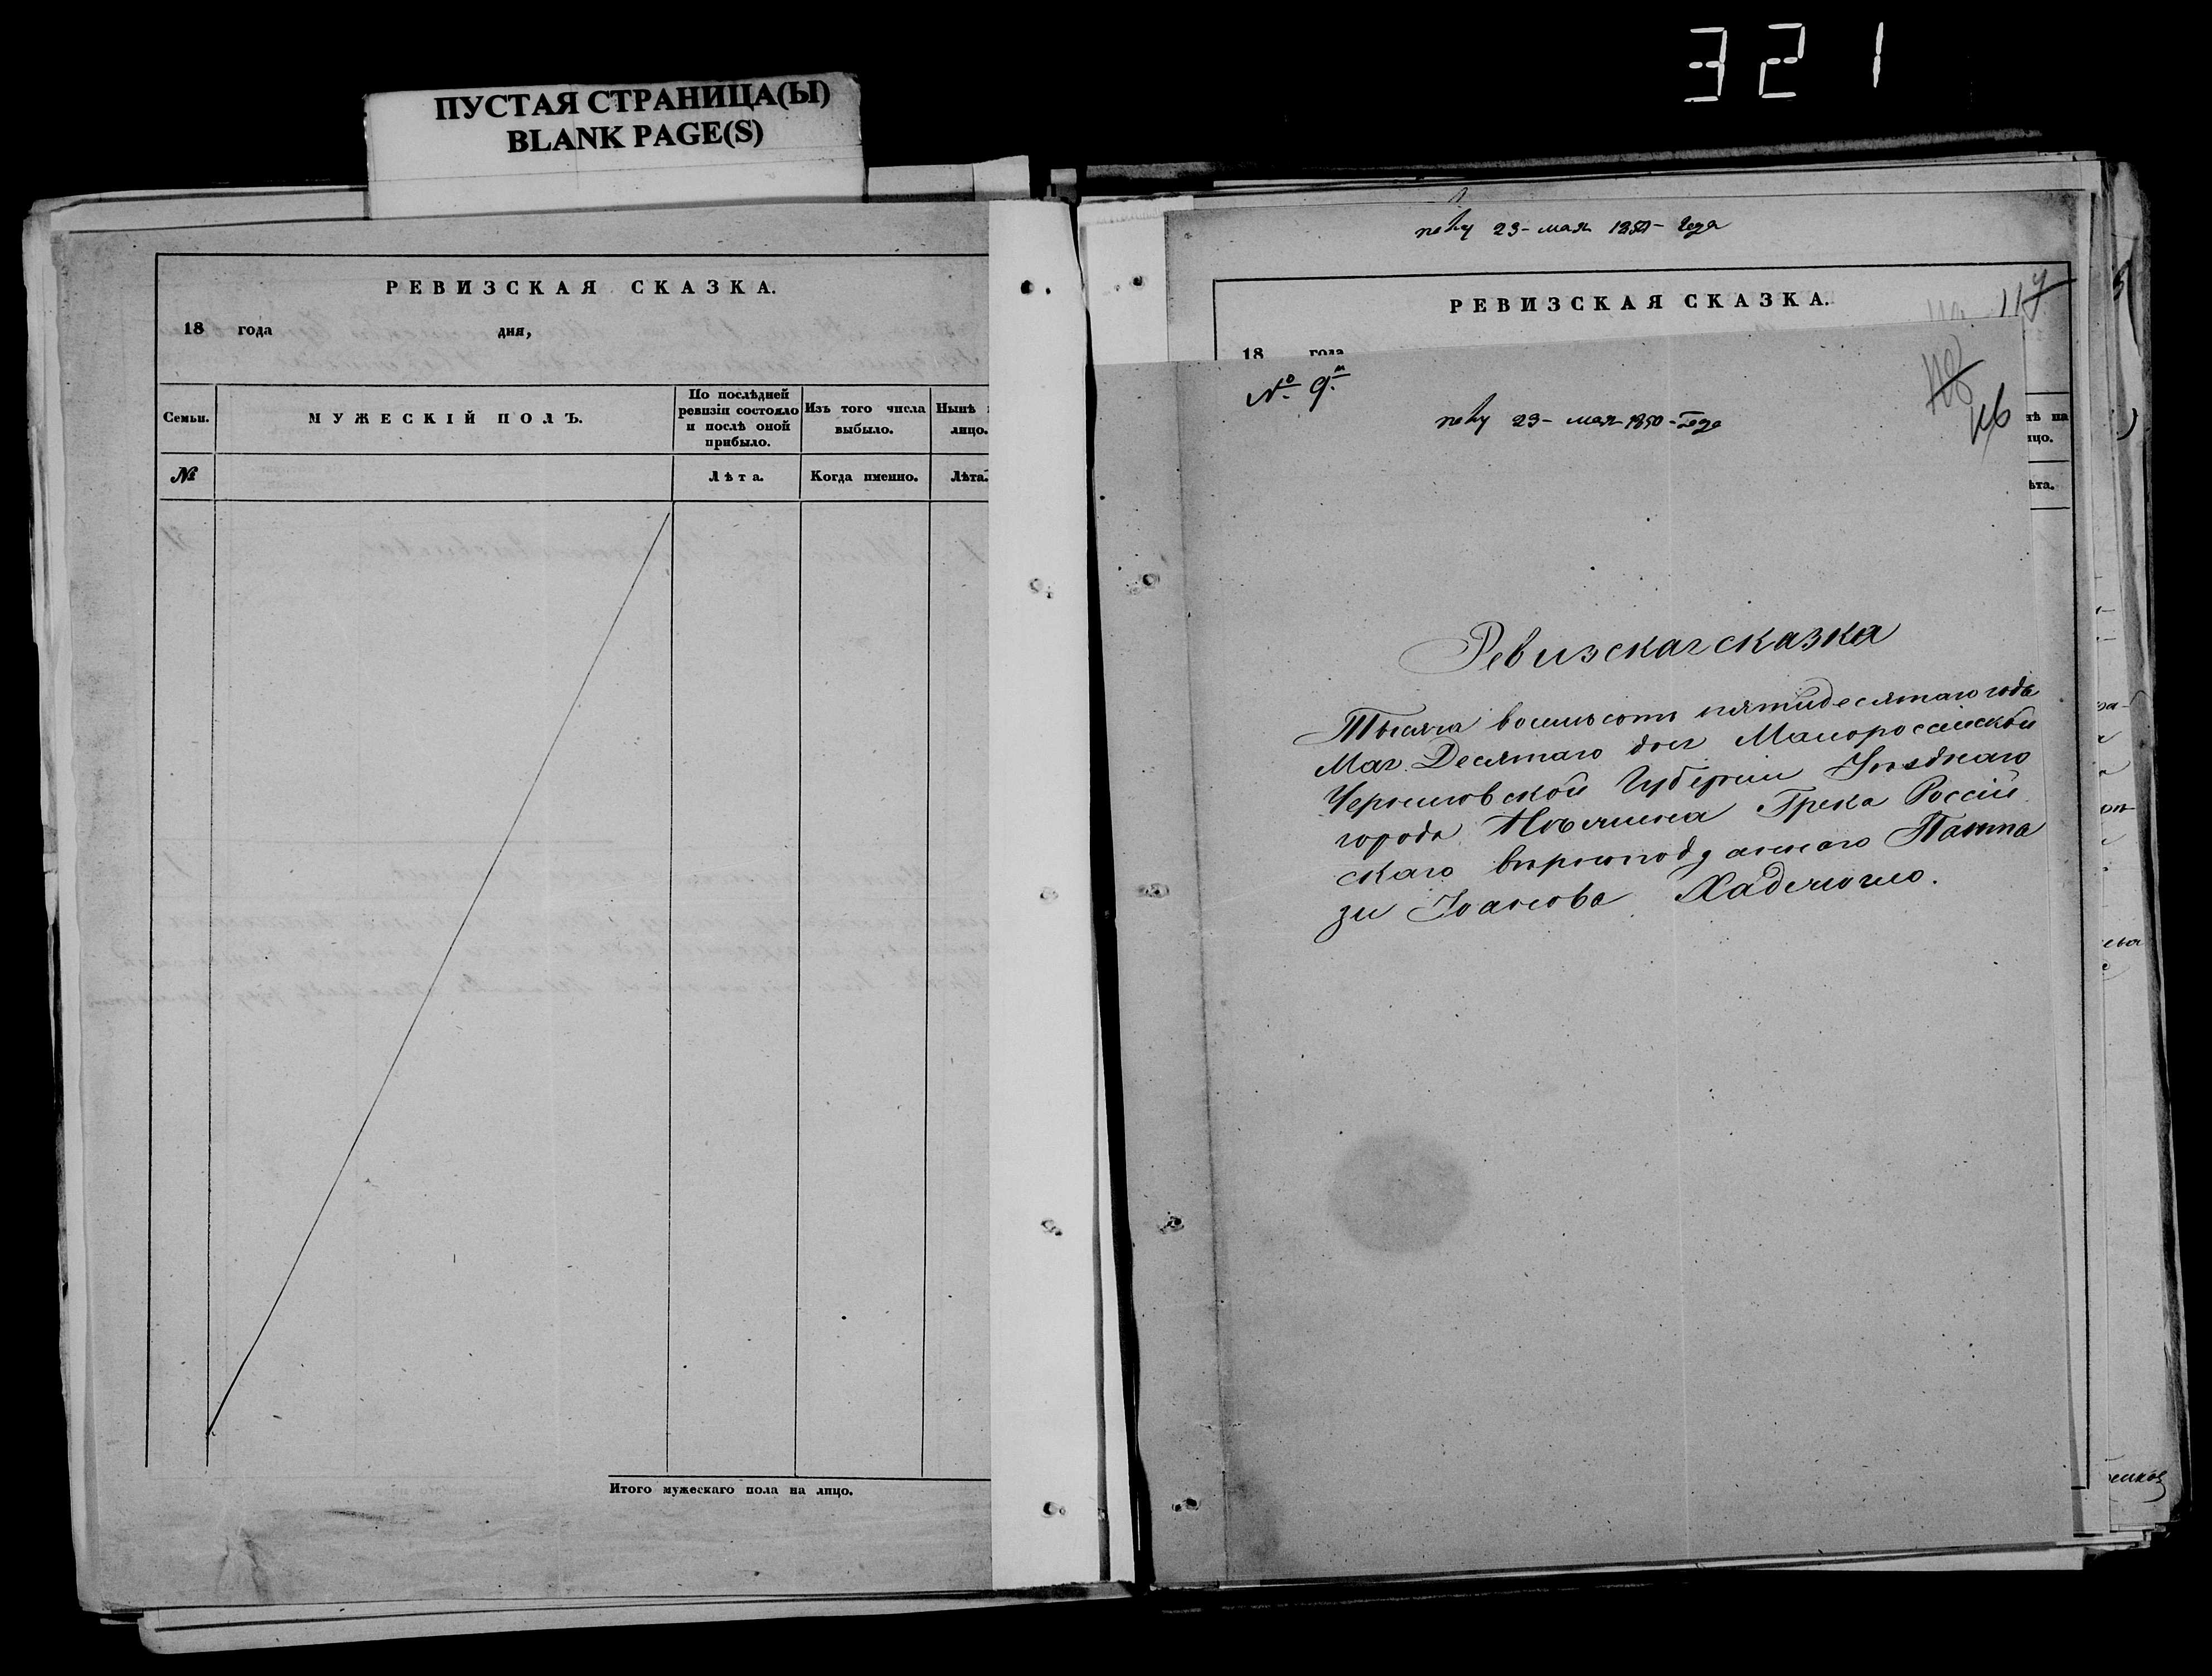 321
ПУСТАЯ СТРАНИЦА(Ы)
BLANK PAGE(S)
РЕВИЗСКАЯ СКАЗКА.
18 года дня,
Семьи.
МУЖЕСКІЙ ПОЛЪ.
По послѣдней
ревизіи состояло
и послѣ оной
прибыло.
Изъ того числа
выбыло.
Нынѣ
лицо.
№
Лѣта.
Когда именно.
Лѣта.
Итого мужескаго пола на лицо.
23 - мая 1850 - года
РЕВИЗСКАЯ СКАЗКА.
117
18 года
№ 9.
116
23 - мая 1850 - года
нѣ на
ицо.
ѣта.
Ревизская сказка
Тысяча восемьсотъ пятидесятаго года
Мая Десятаго дня Малороссійской
Черниговской Губерніи Уѣзднаго
города Нѣжина Грека Россій
скаго вѣрноподданнаго Панта
зи Іоанова